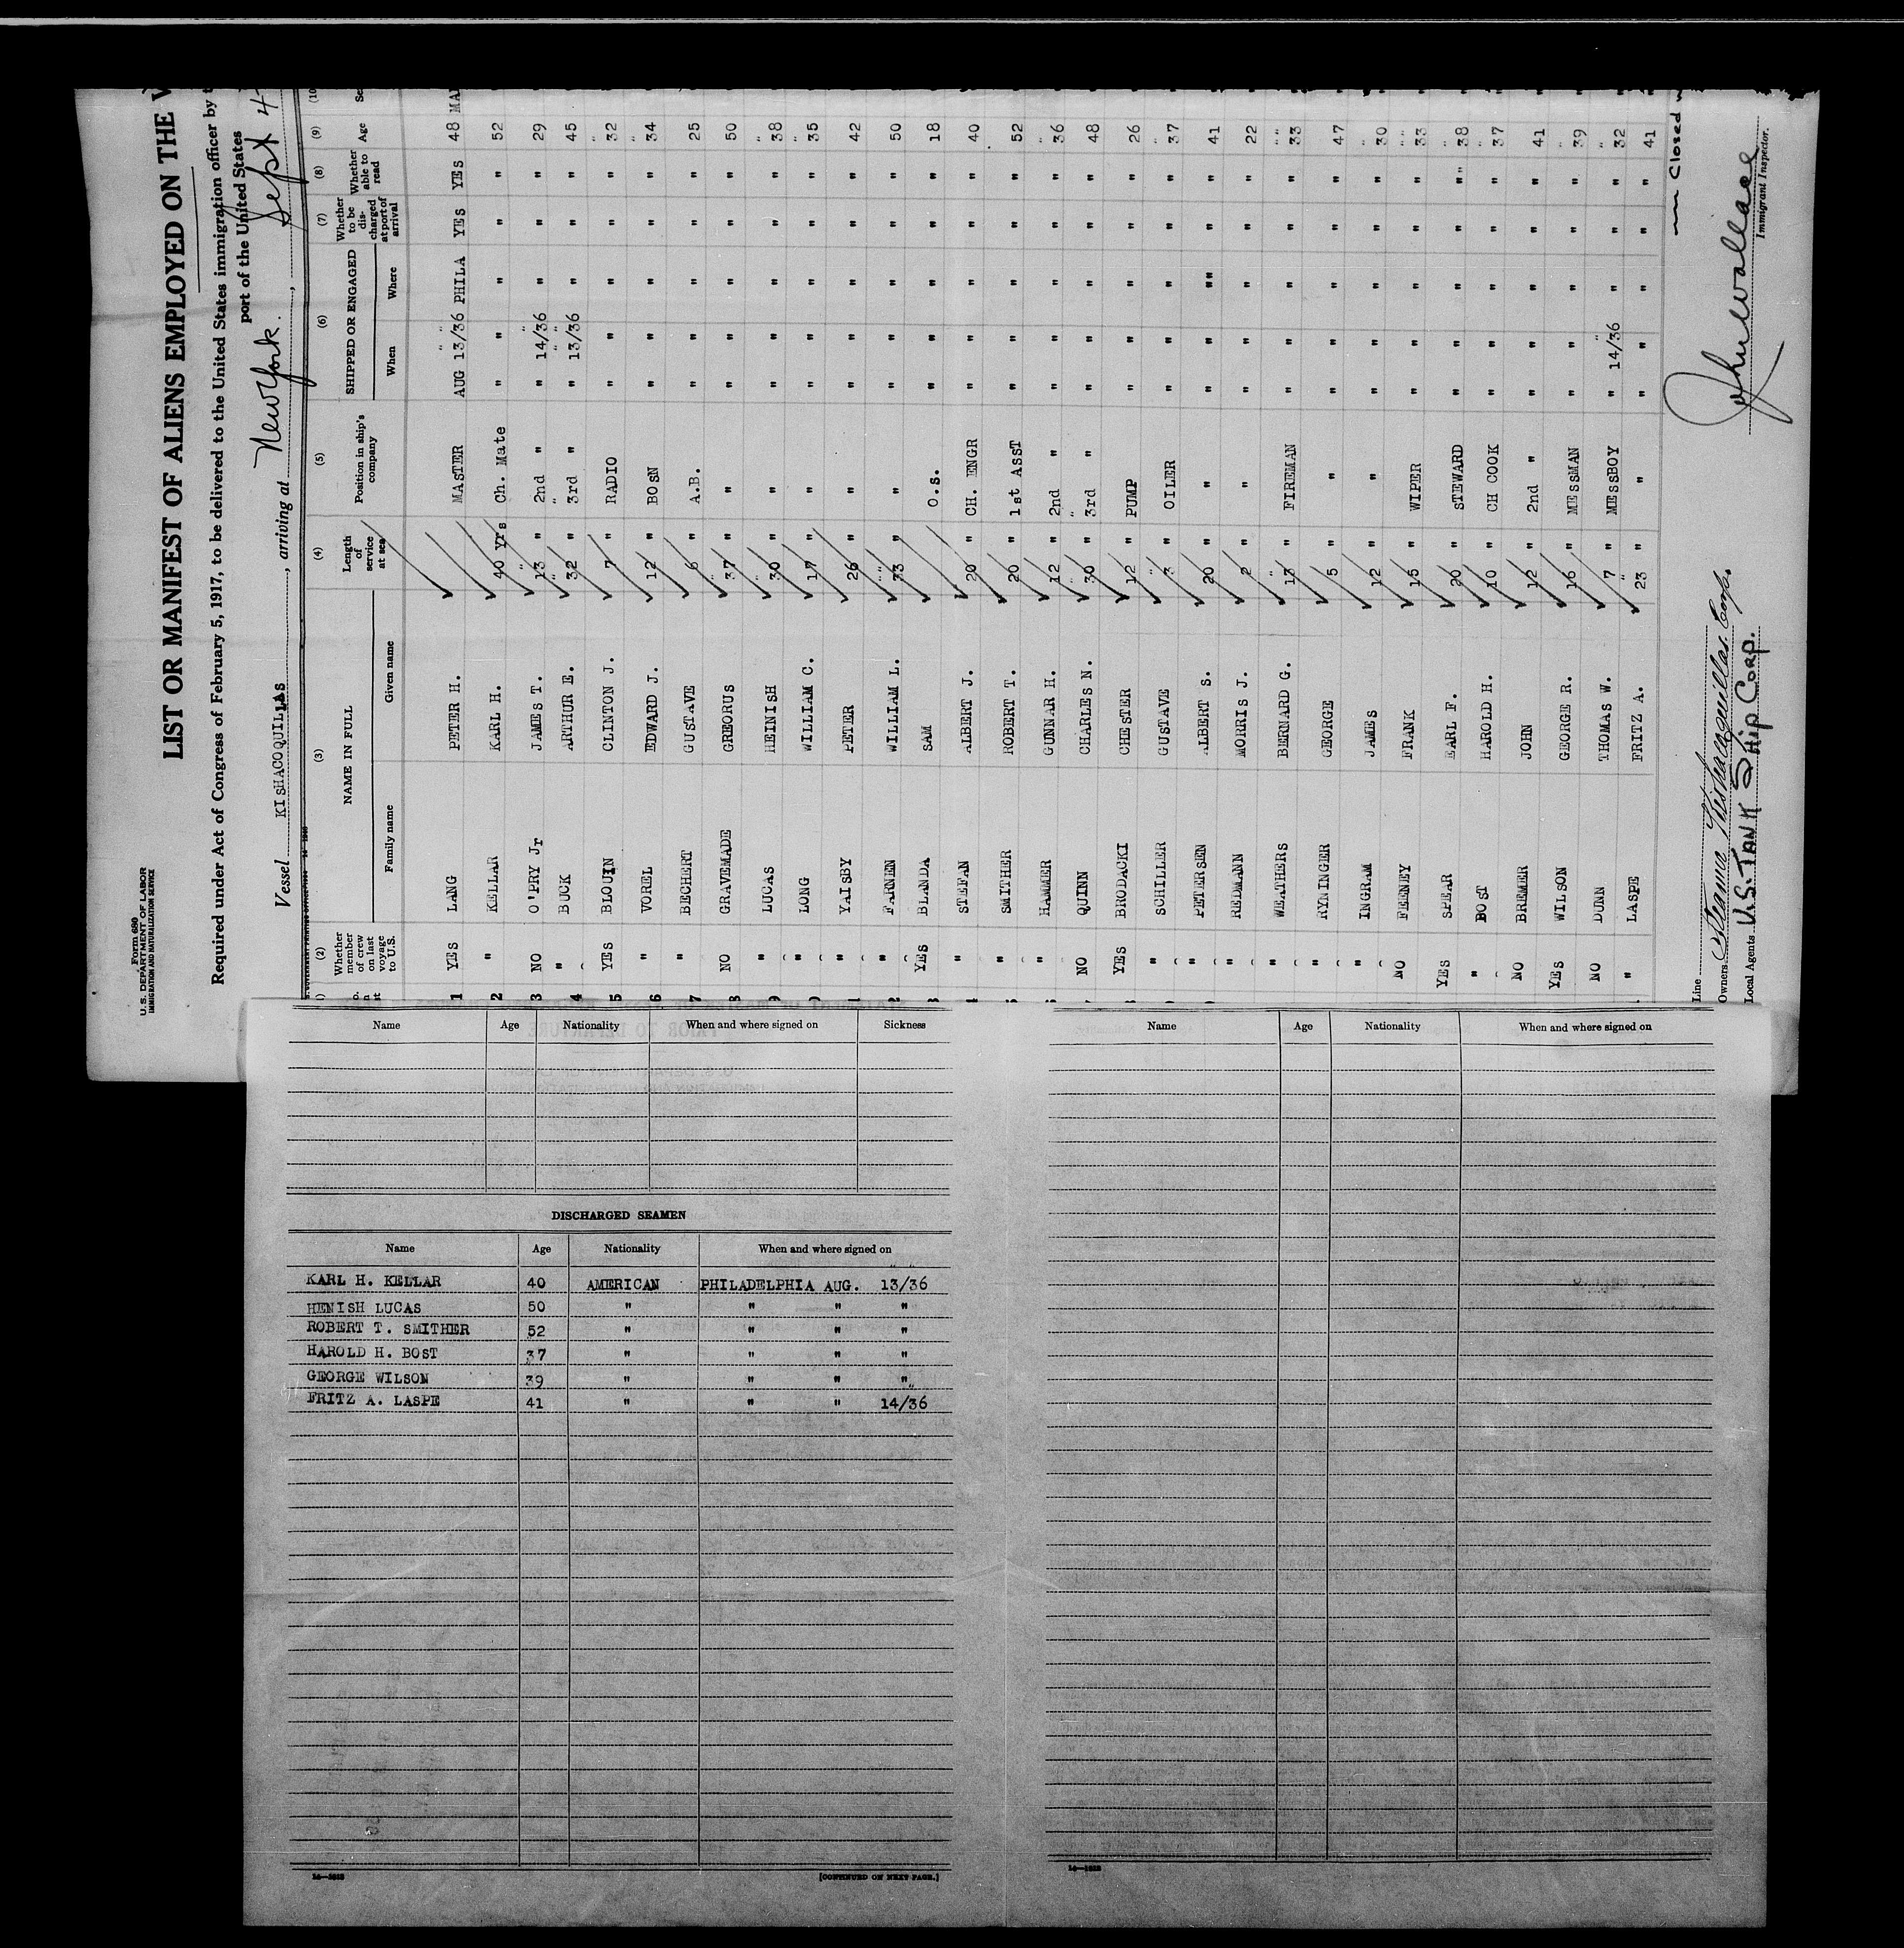 Form 680
U. S. DEPARTMENT OF LABOR
IMMIGRATION AND NATURALIZATION SERVICE
LIST OR MANIFEST OF ALIENS EMPLOYED ON THE
Required under Act of Congress of February 5, 1917, to be delivered to the United States immigration officer by
port of the United States
Vessel KISHACOQUILLAS, arriving at New York, Sept 4
(2) (3) (4) (5) (6) (7) (8) (9) (10
Whether member of crew on last voyage to U.S. NAME IN FULL Family name Given name Length of service at sea Position in ship's company SHIPPED OR ENGAGED When Where Whether to be discharged at port of arrival Whether able to read Age
1 YES LANG PETER H. MASTER AUG 13/36 PHILA YES YES 48
2 " KELLAR KARL H. 40 Yrs Ch. Mate " " " " " 52
3 NO O'PRY Jr JAMES T. 13 " 2nd " " 14/36 " " " 29
4 " BUCK ARTHUR E. 32 " 3rd " " 13/36 " " " 45
5 YES BLOUIN CLINTON J. 7 " RADIO " " " " " 32
6 " VOREL EDWARD J. 12 " BOSN " " " " " 34
7 " BECHERT GUSTAVE 6 " A.B. " " " " " 25
8 NO GRAVEMADE GREORUS 37 " " " " " " " 50
9 " LUCAS HEINISH 30 " " " " " " " 38
0 " LONG WILLIAM C. 17 " " " " " " " 35
1 " YAISBY PETER 26 " " " " " " " 42
2 " FARNEN WILLIAM L. 33 " " " " " " " 50
3 YES BLANDA SAM O.S. " " " " " 18
4 " STEFAN ALBERT J. 20 " CH. ENGR " " " " " 40
5 " SMITHER ROBERT T. 20 " 1st ASST " " " " " 52
6 " HAMMER GUNNAR H. 12 " 2nd " " " " " " 36
NO QUINN CHARLES N. 30 " 3rd " " " " " " 48
8 YES BRODACKI CHESTER 12 " PUMP " " " " " 26
9 " SCHILLER GUSTAVE 3 " OILER " " " " " 37
0 " PETERSEN ALBERT S. 20 " " " " " " " 41
" REDMANN MORRIS J. 2 " " " " " " " 22
" WEATHERS BERNARD G. 13 " FIREMAN " " " " " 33
" RYNINGER GEORGE 5 " " " " " " " 47
" INGRAM JAMES 12 " " " " " " " 30
NO FEENEY FRANK 15 " WIPER " " " " " 33
YES SPEAR EARL F. 20 " STEWARD " " " " " 38
" BOST HAROLD H. 10 " CH COOK " " " " " 37
NO BREMER JOHN 12 " 2nd " " " " " " 41
YES WILSON GEORGE R. 16 " MESSMAN " " " " " 39
NO DUNN THOMAS W. 7 " MESSBOY " 14/36 " " " 32
" LASPE FRITZ A. 23 " " " " " " " 41
Closed
Line
Owners Steamer Kishacoquillas Corp.
Local Agents U.S. TANK SHIP CORP.
Jhn Wallace
Immigrant Inspector.
Name Age Nationality When and where signed on Sickness
DISCHARGED SEAMEN
Name Age Nationality When and where signed on
KARL H. KELLAR 40 AMERICAN PHILADELPHIA AUG. 13/36
HENISH LUCAS 50 " " " "
ROBERT T. SMITHER 52 " " " "
HAROLD H. BOST 37 " " " "
GEORGE WILSON 39 " " " "
FRITZ A. LASPE 41 " " " 14/36
[CONTINUED ON NEXT PAGE.]
Name Age Nationality When and where signed on